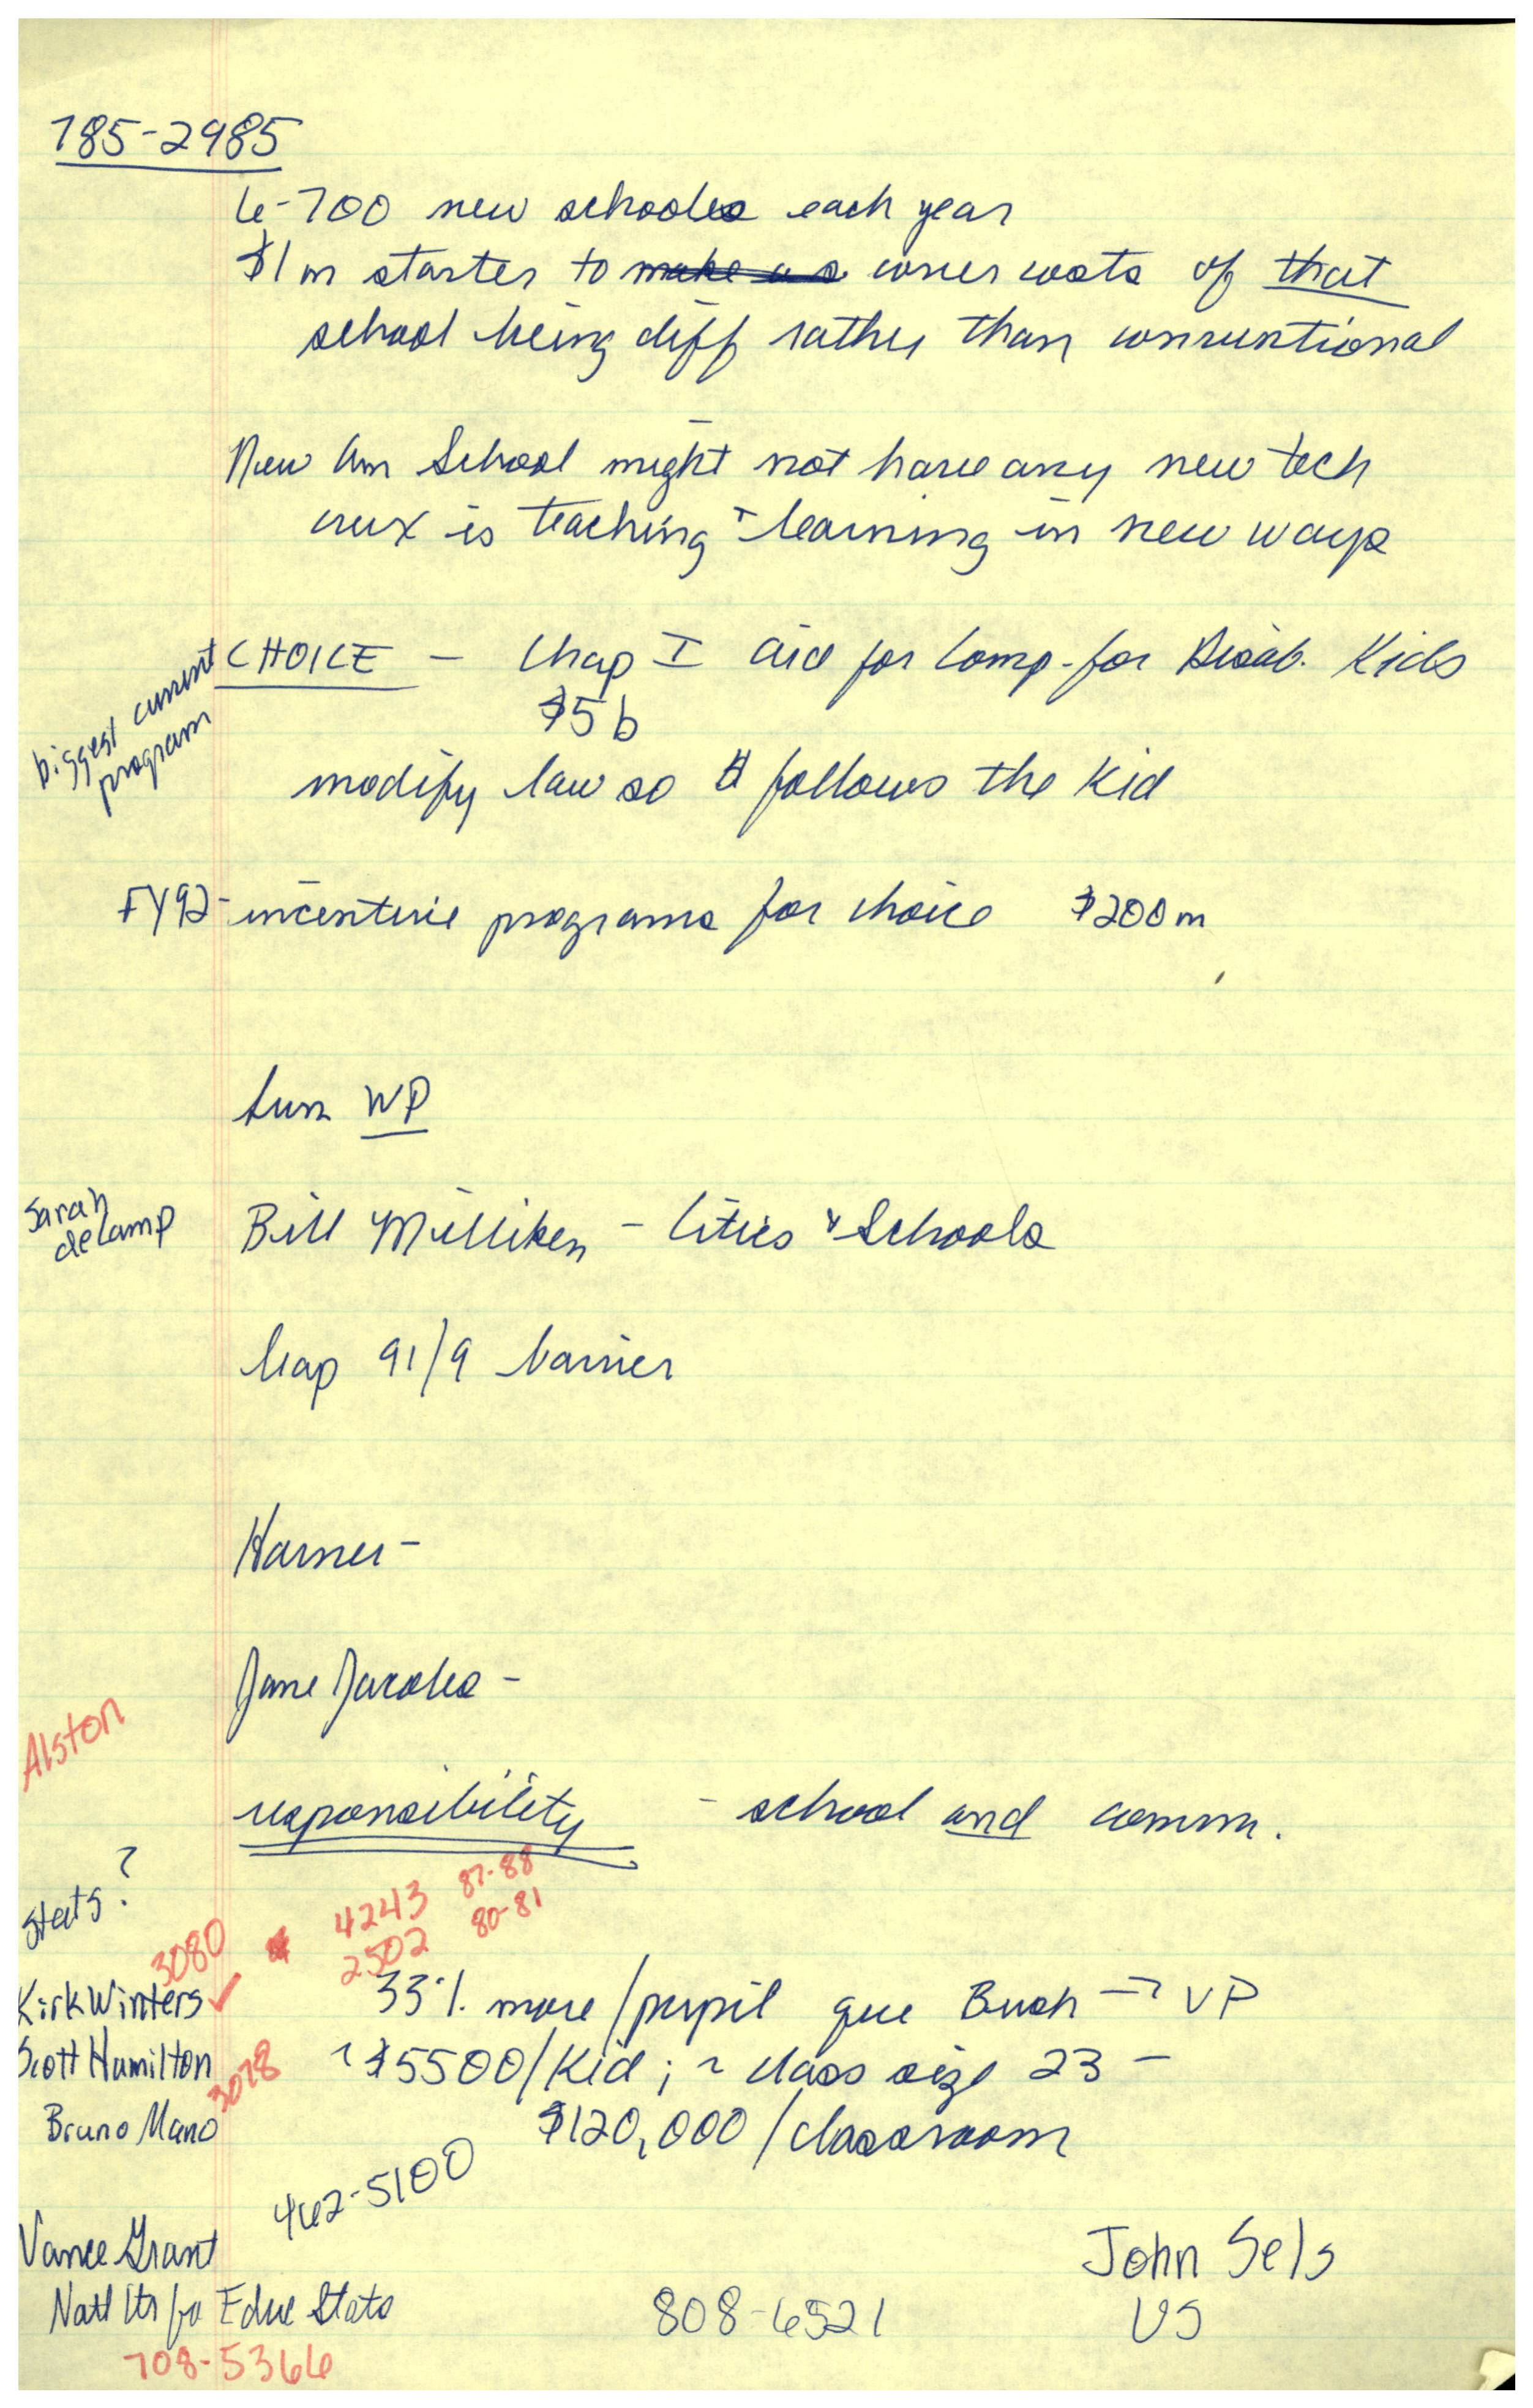 785-2985
6-700 new schools each year
$1m starter to make us cover costs of that
school being diff rather than conventional
New Am School might not have any new tech
crux is teaching + learning in new ways
biggest current
program
CHOICE - Chap I aid for Comp. for Disab. Kids
$5b
modify law so $ follows the kid
FY92 - incentive programs for choice $200m
WP
Sarah
deCamp
Bill Milliken - Cities & Schools
leap 91/9 barrier
Jane Jacobs -
Alston
responsibility - school and comm.
stats?
3080
4243 87-88
2502 80-81
Kirk Winters ✓
33% more/pupil que Bush → VP
Scott Hamilton 3078
~$5500/Kid; ~ class size 23 -
Bruno Mano
$120,000/classroom
462-5100
Vance Grant
Natl Ctr for Educ Stats
708-5366
808-6521
John Sels
US